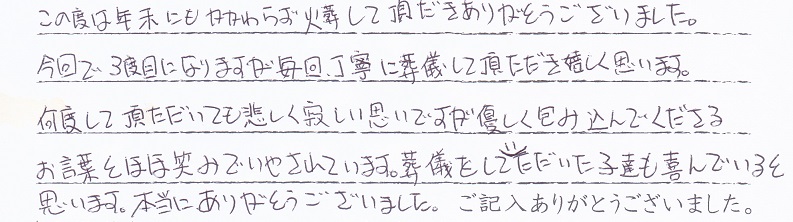 この度は年末にもかかわらず火葬して頂だきありがとうございました。
今回で3度目になりますが毎回、丁寧に葬儀して頂ただき嬉しく思います。
何度して頂ただいても悲しく寂しい思いですが優しく包み込んでくださる
お言葉とほほ笑みでいやされています。葬儀をしてただいた子達も喜んでいると
思います。本当にありがとうございました。ご記入ありがとうございました。